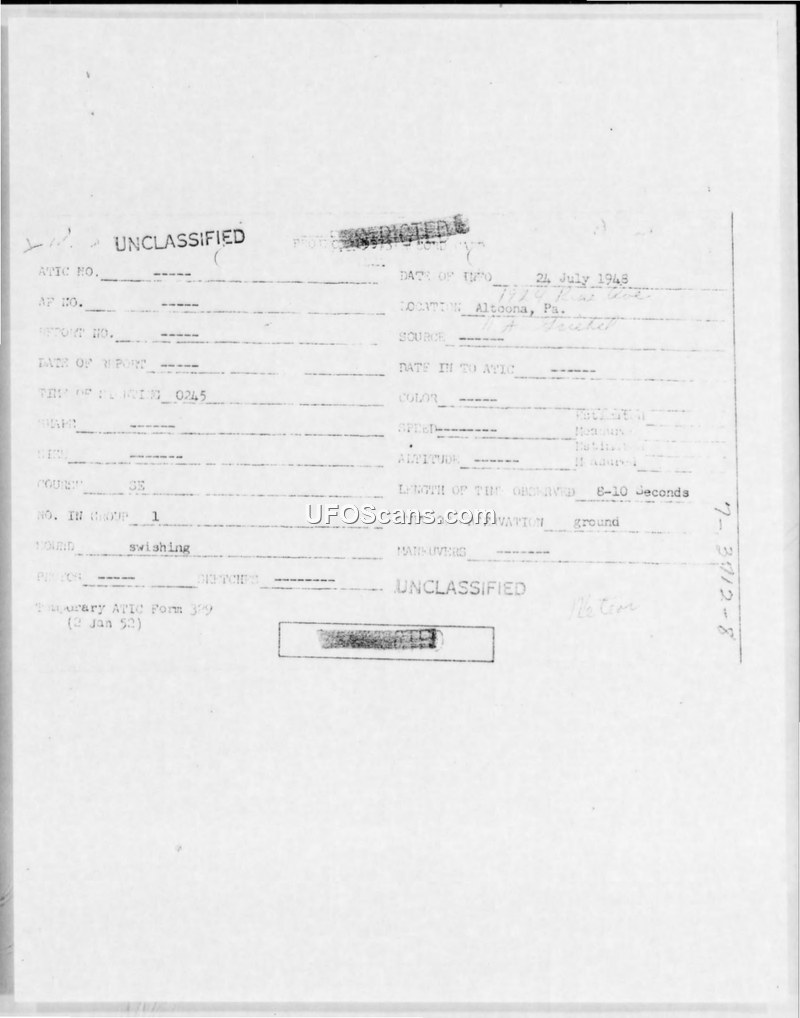 UNCLASSIFIED
ATIC NO. ----- DATE OF INFO 24 July 1948
AF NO. ----- LOCATION Altoona, Pa.
REPORT NO. ----- SOURCE ------
DATE OF REPORT ----- DATE IN TO ATIC ------
TIME OF SIGHTING 0245 COLOR -----
SHAPE ------ SPEED --------- Estimated
Measured
SIZE ------- ALTITUDE ------ Estimated
Measured
COURSE SE LENGTH OF TIME OBSERVED 8-10 Seconds
NO. IN GROUP 1 OBSERVATION ground
UFOScans.com
SOUND swishing MANEUVERS --------
PHOTOS ----- SKETCHES --------- UNCLASSIFIED
Temporary ATIC Form 329
(2 Jan 52)
Meteor
7-3712-8